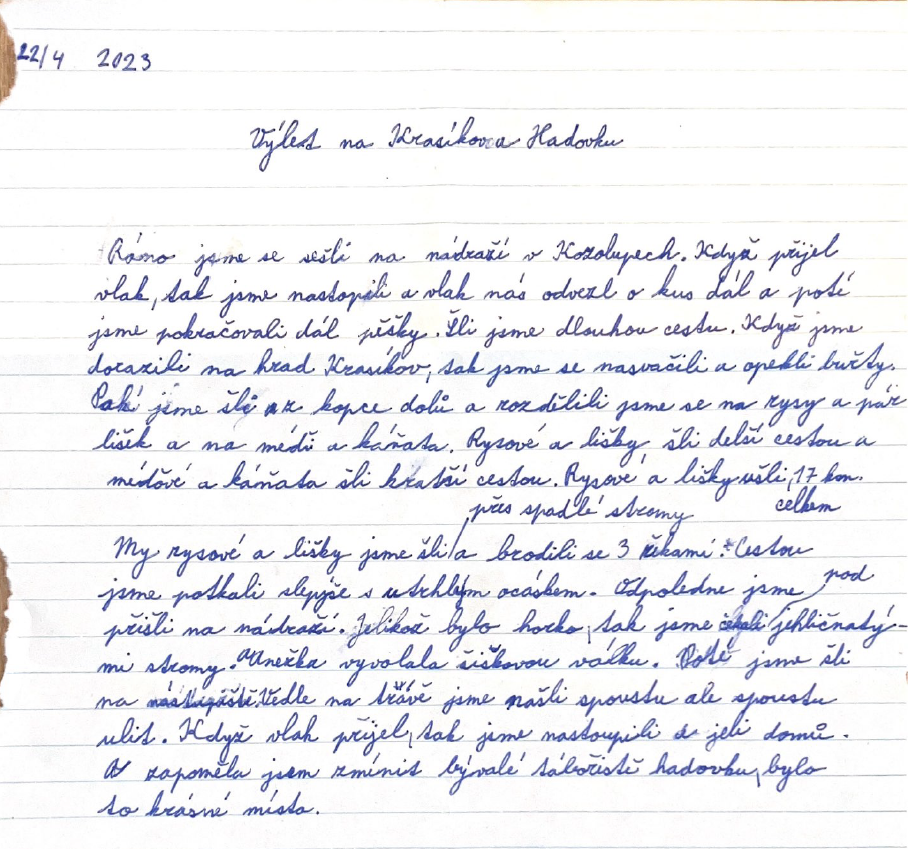 22/4 2023
Výlet na Krasíkov a Hadovku
Ráno jsme se sešli na nádraží v Kozolupech. Když přijel
vlak, tak jsme nastopili a vlak nás odvezl o kus dál a poté
jsme pokračovali dál pěšky. Šli jsme dlouhou cestu. Když jsme
dorazili na hrad Krasíkov, tak jsme se nasvačili a opekli buřty.
Pak jsme šli z kopce dolů a rozdělili jsme se na rysy a pár
lišek a na médi a káňata. Rysové a lišky šli delší cestou a
médové a káňata šli kratší cestou. Rysové a lišky ušli 17 km.
přes spadlé stromy celkem
My rysové a lišky jsme šli a brodili se 3 řekami. Cestou
jsme potkali slepýše s utrhlým ocáskem. Odpoledne jsme pod
přišli na nádraží. Jelikož bylo horko, tak jsme čekali jehličnatý-
mi stromy. Anežka vyvolala šiškovou válku. Poté jsme šli
na nástupiště. Vedle na trávě jsme našli spoustu ale spoustu
ulit. Když vlak přijel, tak jsme nastoupili a jeli domů.
A zapoměla jsem zmínit bývalé tábořiště hadovku, bylo
to krásné místo.